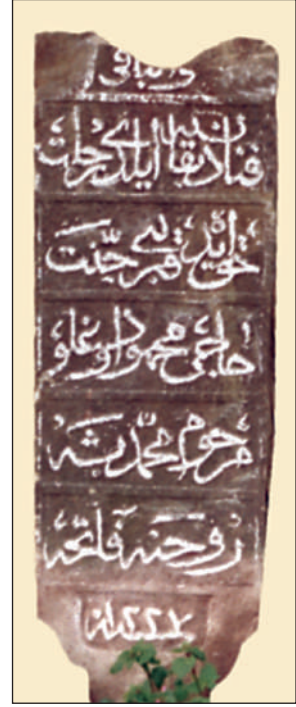 الباقى
فنادن بقايه ايلدى رحلت
حق ايده قبرنى جنت
حاجى محمود اوغلو
مرحوم محمد بشه
روحنه فاتحه